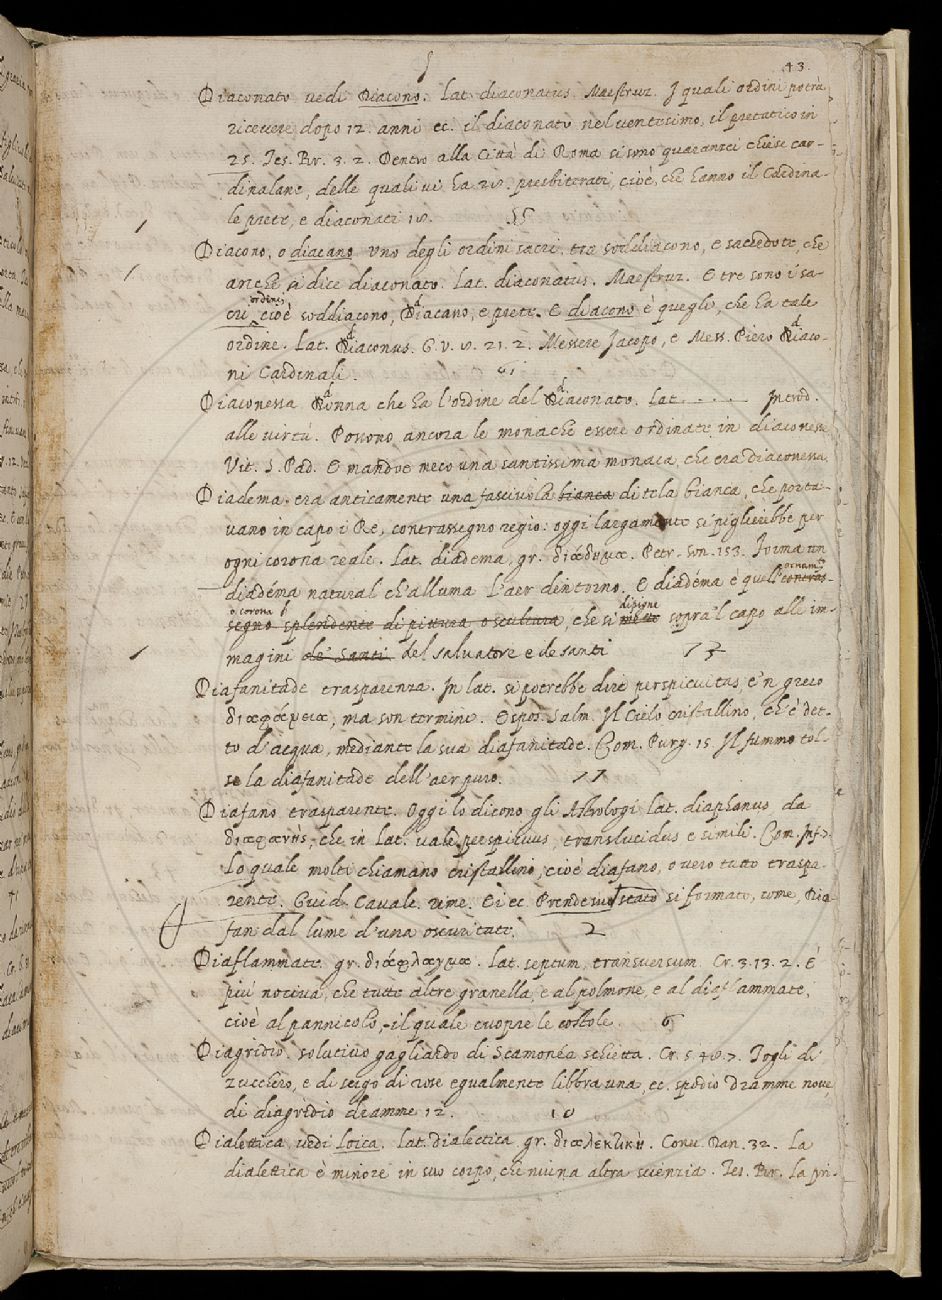 43.
Diaconato vedi Diacono. Lat. diaconatus. Maestruz. I quali ordini potrà
ricevere dopo 12. anni ec. il diaconato nel ventesimo, il pretatico in
25. Tes. Br. 3. 2. Dentro alla Città di Roma si sono quaranzei chiese car-
dinalane, delle quali vi ha 28. presbiterati, cioè, che hanno il Cardina-
le prete, e diaconati 18.
Diacono, o diacano uno degli ordini sacri, tra soddiacono, e sacerdote che
anche si dice diaconato. Lat. diaconatus. Maestruz. E tre sono i sa-
cri ordini, cioè soddiacono, diacano, e prete. E diacono è quegli, che ha tale
ordine. Lat. diaconus. G. V. 8. 21. 2. Messere Jacopo, e Mess. Piero diaco-
ni Cardinali.
Diaconessa donna che ha l'ordine del diaconato. Lat. . . . . . Introd.
alle virtú. Possono ancora le monache essere ordinate in diaconesse
Vit. S. Pad. E mandoe meco una santissima monaca, che era diaconessa.
Diadema. era anticamente una fasciuola bianca di tela bianca, che porta-
vano in capo i Re, contrassegno regio: oggi largamente si piglierebbe per
ogni corona reale. Lat. diadema, gr. διάδημα. Petr. Son. 153. Forma un
diadéma natural ch'alluma L'aer dintorno. E diadéma è quell' ornam.to contras-
o corona segno splendente di pittura o scultura, che si dipigne mette sopra'l capo alle im-
magini de' Santi del salvatore e de santi 13
Diafanitade trasparenza. In lat. si potrebbe dire perspicuitas, e'n greco
διαφάρεια, ma son termini. Espos. Salm. Il Cielo cristallino, ch'è det-
to d'acqua, mediante la sua diafanitade. Com. Purg. 15. Il fummo tol-
se la diafanitade dell'aer puro. 11
Diafano trasparente. Oggi lo dicono gli Astrologi lat. diaphanus da
διαφανής, che in Lat. vale perspicuus, translucidus e simili. Com. Inf. 7.
Lo quale molti chiamano cristallino, cioè diafano, o vero tutto traspa-
rente. Guid. Cavalc. rime. Ei ec. Prende suo stato si formato, come, Dia-
fan dal lume d'una oscuritate. 2
Diaflammate. gr. διάφλαγμα. Lat. septum, transversum. Cr. 3. 13. 2. È
piú nociva, che tutte altre granella, e al polmone, e al diaflammate,
cioè al pannicolo, il quale cuopre le costole. 6
Diagridio. solutivo gagliardo di Scamonéa schietta. Cr. 5. 48. 7. Togli di
zucchero, e di sugo di rose egualmente libbra una, ec. spodio dramme nove,
di diagridio dramme 12. 10
Dialettica vedi Loica. Lat. dialectica, gr. διαλεκτικὴ. Conv. Dan. 32. La
dialettica è minore in suo corpo, che niuna altra scienzia. Tes. Br. La pri-